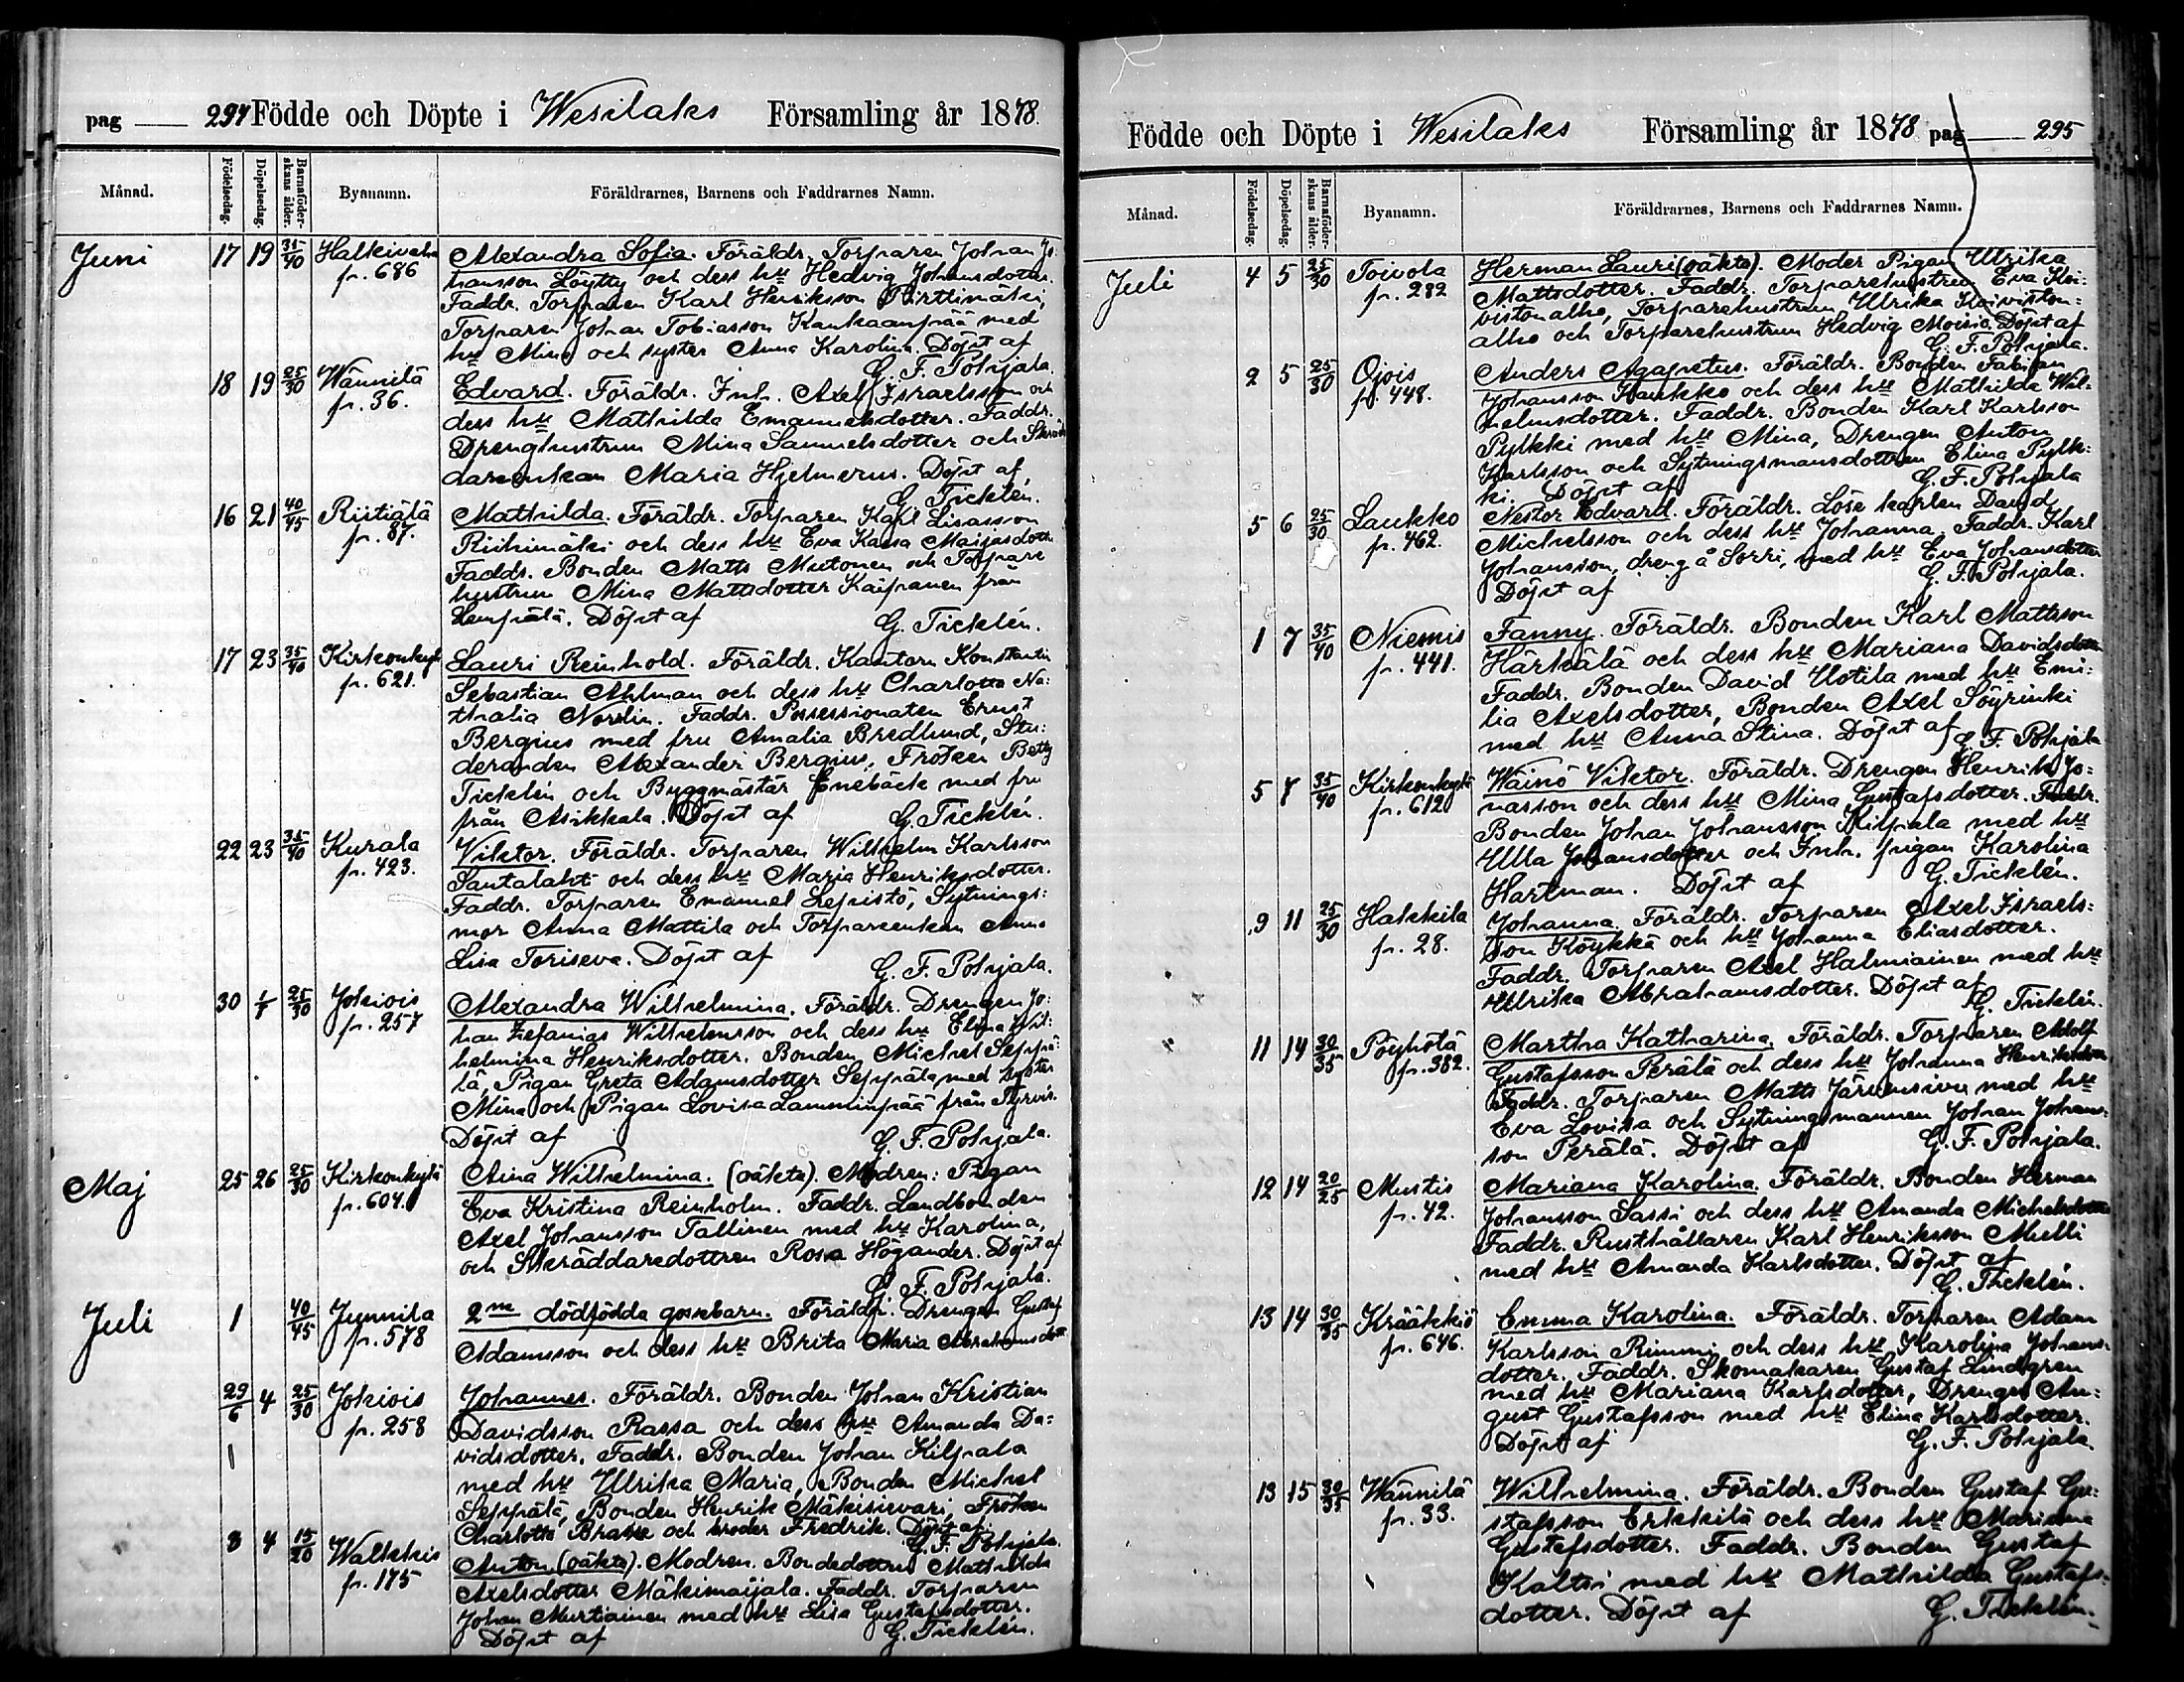 pag 294 Födde och Döpte i Wesilaks Församling år 1878.
Månad. Födelsedag. Döpelsedag. Barnaföderskans ålder. Byanamn. Föräldrarnes, Barnens och Faddrarnes Namn.
Juni 17 19 35/40 Halkivaha p. 686 Alexandra Sofia. Föräldr. Torparen Johan Jo-
hansson Löytty och dess hu Hedvig Johansdotter.
Faddr. Torparen Karl Henriksson Pirttimäki,
Torparen Johan Tobiasson Kankaanpää med
hu Mina och syster Anna Karolina. Döpt af
G. F. Pohjala.
18 19 25/30 Wännilä p. 36. Edvard. Föräldr. Inh. Axel Israelsson och
dess hu Mathilda Emanuelsdotter. Faddr.
Drenghustrun Mina Samuelsdotter och Skräd
dareenkan Maria Hjelmerus. Döpt af
G. Ticklén.
16 21 40/45 Riitiälä p. 87. Mathilda. Föräldr. Torparen Karl Lisasson
Riihimäki och dess hu Eva Kaisa Maijasdotter
Faddr. Bonden Matts Mutonen och Torpare
hustrun Mina Mattsdotter Kaipanen från
Lempälä. Döpt af G. Ticklén.
17 23 35/40 Kirkonkyl p. 621. Lauri Reinhold. Föräldr. Kantorn Konstantin
Sebastian Ahlman och dess hu Charlotta Na:
thalia Nordin. Faddr. Possessionaten Ernst
Bergius med fru Amalia Bredlund, Stu:
deranden Alexander Bergius, Fröken Betty
Ticklén och Byggmästar Enebäck med fru
från Asikkala. Döpt af G. Ticklén.
22 23 35/40 Kurala p. 423. Viktor. Föräldr. Torparen Wilhelm Karlsson
Santalaht och dess hu Maria Henriksdotter.
Faddr. Torparen Emanuel Lepistö, Sytnings:
mor Anna Mattila och Torpareenkan Anna
Lisa Toriseva. Döpt af
G. F. Pohjala.
30 1/7 25/30 Jokiois p. 257 Alexandra Wilhelmina. Föräldr. Drengen Jo:
han Zefanias Wilhelmsson och dess hu Elina Wil:
helmina Henriksdotter. Bonden Michel Seppä:
lä, Pigan Greta Adamsdotter Seppälä med syster
Mina och Pigan Lovisa Lamminpää från Tyrvis.
Döpt af G. F. Pohjala.
Maj 25 26 25/30 Kirkonkylä p. 604. Aina Wilhelmina. (oäkta). Modren: Pigan
Eva Kristina Reinholm. Faddr. Landbonden
Axel Johansson Tallinen med hu Karolina,
och Skräddaredottren Rosa Högander. Döpt af
G. F. Pohjala.
Juli 1 40/45 Junnila p. 578 2ne dödfödda gossebarn. Föräldr. Drengen Gustaf
Adamsson och dess hu Brita Maria Abrahamsdott
29/6 4 25/30 Jokiois p. 258 Johannes. Föräldr. Bonden Johan Kristian
Davidsson Rassa och dess hu Amanda Da:
vidsdotter. Faddr. Bonden Johan Kilpala
med hu Ulrika Maria, Bonden Michel
Seppälä, Bonden Henrik Mäkisievari, Fröken
Charlotta Brake och broder Fredrik. Döpt af
G. F. Pohjala.
3 4 15/20 Walkkis p. 175 Anton. (oäkta). Modren. Bondedottren Mathilda
Axelsdotter Mäkimaijala. Faddr. Torparen
Johan Murtiainen med hu Lisa Gustafsdotter.
Döpt af G. Ticklén.
Födde och Döpte i Wesilaks Församling år 1878 pag 295
Månad. Födelsedag. Döpelsedag. Barnaföderskans ålder. Byanamn. Föräldrarnes, Barnens och Faddrarnes Namn.
Juli 4 5 25/30 Toivola p. 282 Herman Lauri (oäkta). Moder Pigan Ulrika
Mattsdotter. Faddr. Torparehustrun Eva Koi:
vistonalho, Torparehustrun Ulrika Koiviston:
alho och Torparehustrun Hedvig Moisio. Döpt af
G. F. Pohjala.
2 5 25/30 Ojois p. 448. Anders Agapetus. Föräldr. Bonden Fabian
Johansson Kaukko och dess hu Mathilda Wil-
helmsdotter. Faddr. Bonden Karl Karlsson
Pylkki med hu Mina, Drengen Anton
Karlsson och Sytningsmansdottren Elina Pylk:
ki. Döpt af G. F. Pohjala
5 6 25/30 Laukko p. 462. Nestor Edvard. Föräldr. Löse karlen David
Michelsson och dess hu Johanna. Faddr. Karl
Johansson, dreng å Sorri, med hu Eva Johansdotter
Döpt af G. F. Pohjala.
1 7 35/40 Niemis p. 441. Fanny. Föräldr. Bonden Karl Mattsson
Härkälä och dess hu Mariana Davidsdotter
Faddr. Bonden David Uotila med hu Emi:
lia Axelsdotter, Bonden Axel Söyrinki
med hu Anna Stina. Döpt af G. F. Pohjala
5 7 35/40 Kirkonkylä p. 612 Wäinö Viktor. Föräldr. Drengen Henrik Jo:
nasson och dess hu Mina Gustafsdotter. Faddr.
Bonden Johan Johansson Kilpala med hu
Ulla Johansdotter och Inh. pigan Karolina
Hartman. Döpt af G. Ticklén.
9 11 25/30 Hakkila p. 28. Johanna. Föräldr. Torparen Axel Israels:
son Köykkä och hu Johanna Eliasdotter.
Faddr. Torparen Axel Halmiainen med hu
Ulrika Abrahamsdotter. Döpt af
G. Ticklén.
11 14 30/35 Pöyhölä p. 382. Martha Katharina. Föräldr. Torparen Adolf
Gustafsson Perälä och dess hu Johanna Henriksdotter
Faddr. Torparen Matts Järvensivu med hu
Eva Lovisa och Sytningsmannen Johan Johans-
son Perälä. Döpt af G. F. Pohjala.
12 14 20/25 Mustis p. 42. Mariana Karolina. Föräldr. Bonden Herman
Johansson Sassi och dess hu Amanda Michelsdotter
Faddr. Rusthållaren Karl Henriksson Mulli
med hu Amanda Karlsdotter. Döpt af
G. Ticklén.
13 14 30/35 Krääkkiö p. 646. Emma Karolina. Föräldr. Torparen Adam
Karlsson Rimmi och dess hu Karolina Johans-
dotter. Faddr. Skomakaren Gustaf Lindgren
med hu Mariana Karlsdotter, Drengen Au:
gust Gustafsson med hu Elina Karlsdotter.
Döpt af G. F. Pohjala.
13 15 30/35 Wännilä p. 33. Wilhelmina. Föräldr. Bonden Gustaf Gu:
stafsson Erkkilä och dess hu Mariana
Gustafsdotter. Faddr. Bonden Gustaf
Kaltsi med hu Mathilda Gustafs-
dotter. Döpt af G. Ticklén.